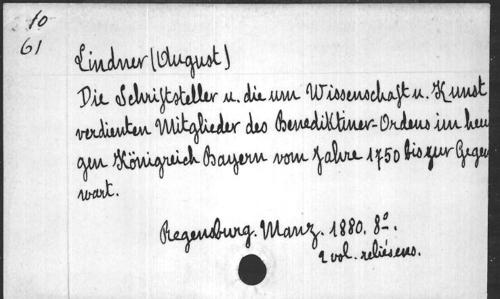 10
61
Lindner (August)
Die Schriftsteller u. die um Wissenschaft u. Kunst
verdienten Mitglieder des Benediktiner-Ordens im heu
gen Königreich Bayern vom Jahre 1750 bis zur Gegen
wart.
Regensburg. Manz. 1880. 8º.
2 vol. reliés ens.